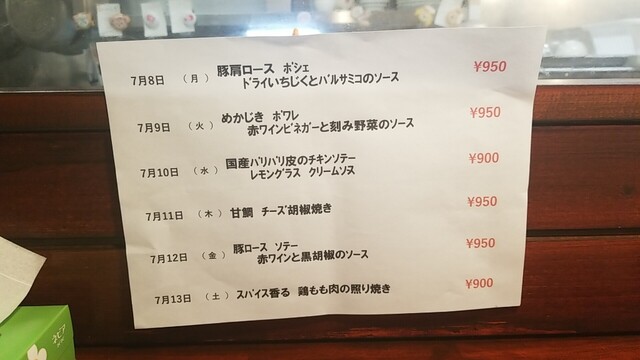 7月8日 （月） 豚肩ロース ポシェ ¥950
ドライいちじくとバルサミコのソース
7月9日 （火） めかじき ポワレ ¥950
赤ワインビネガーと刻み野菜のソース
7月10日 （水） 国産パリパリ皮のチキンソテー ¥900
レモングラス クリームソス
7月11日 （木） 甘鯛 チーズ胡椒焼き ¥950
7月12日 （金） 豚ロース ソテー ¥950
赤ワインと黒胡椒のソース
7月13日 （土） スパイス香る 鶏もも肉の照り焼き ¥900
ネピア